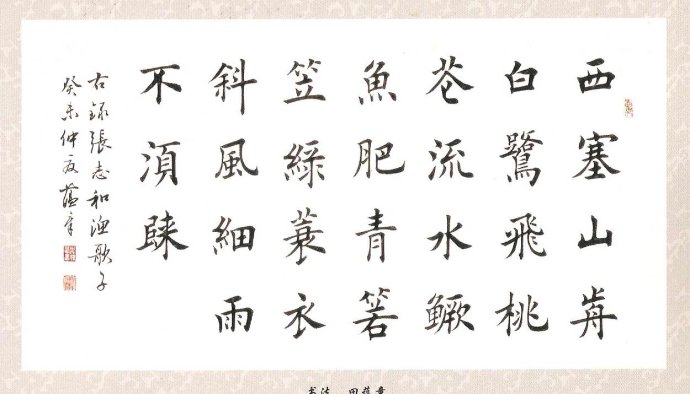 西塞山歬
白鷺飛桃
花流水鱖
魚肥青箬
笠綠蓑衣
斜風細雨
不須歸
右録張志和漁歌子
癸未仲夏蘊章
书法 田蕴章